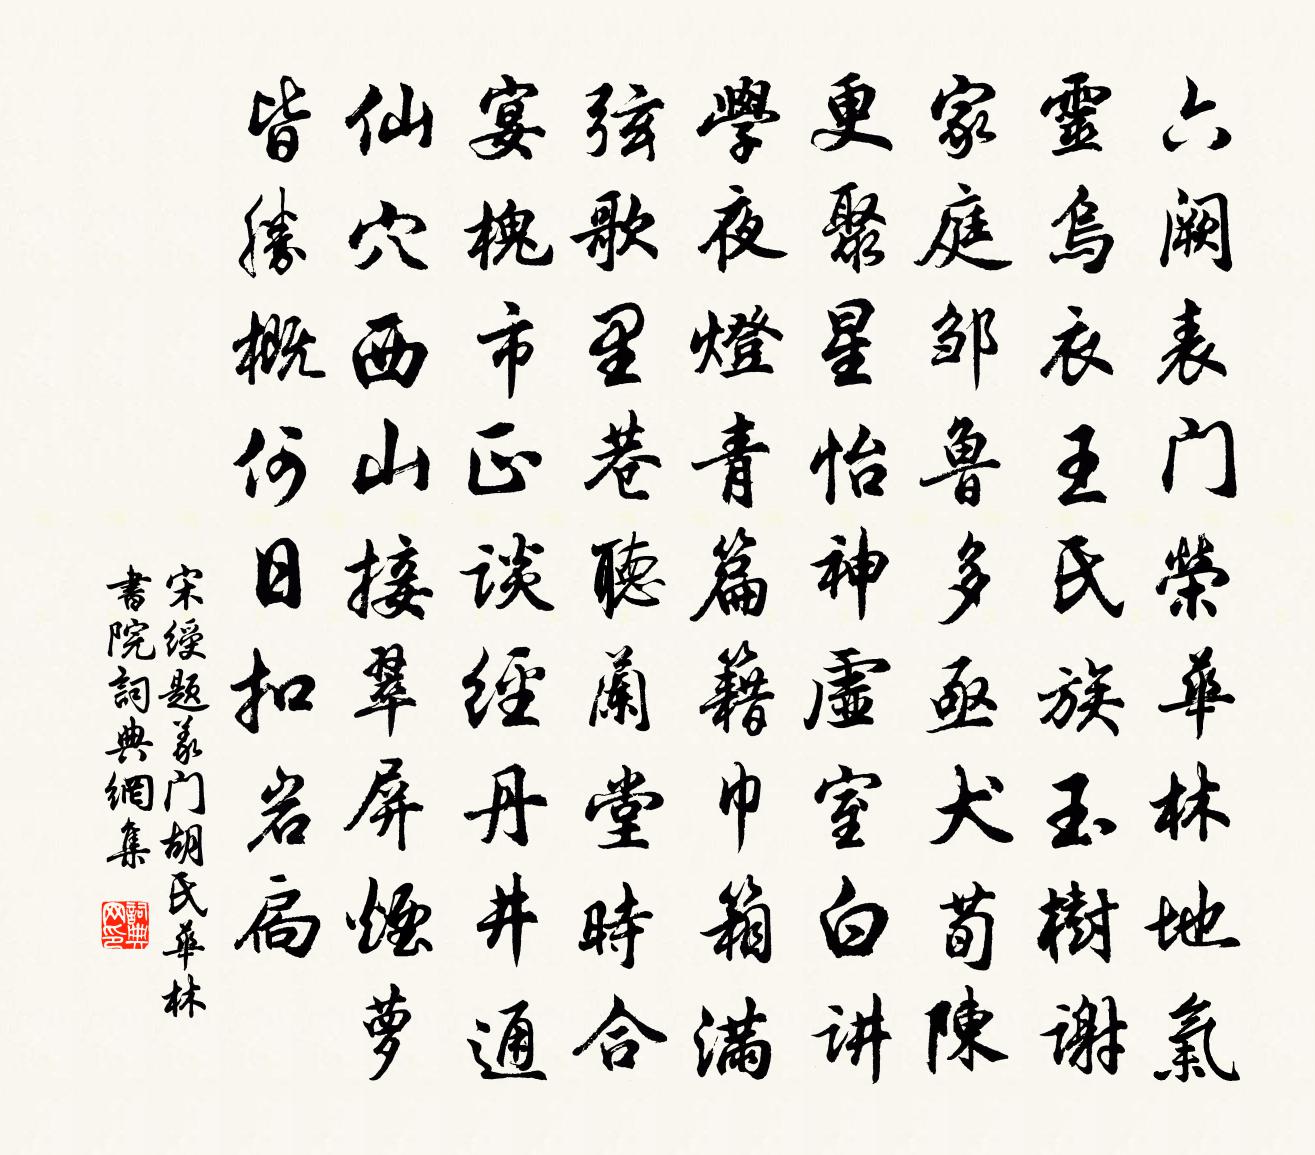 六阙表门榮華林地氣
靈烏衣王氏族玉樹谢
家庭邹鲁多亟犬荀陳
更聚星怡神虛室白讲
學夜燈青篇籍巾箱满
弦歌里巷聽蘭堂時合
宴槐市正谈經丹井通
仙穴西山接翠屏煙萝
皆勝概何日扣岩扃
宋綬题义门胡氏華林
書院詞典網集
詞典网印